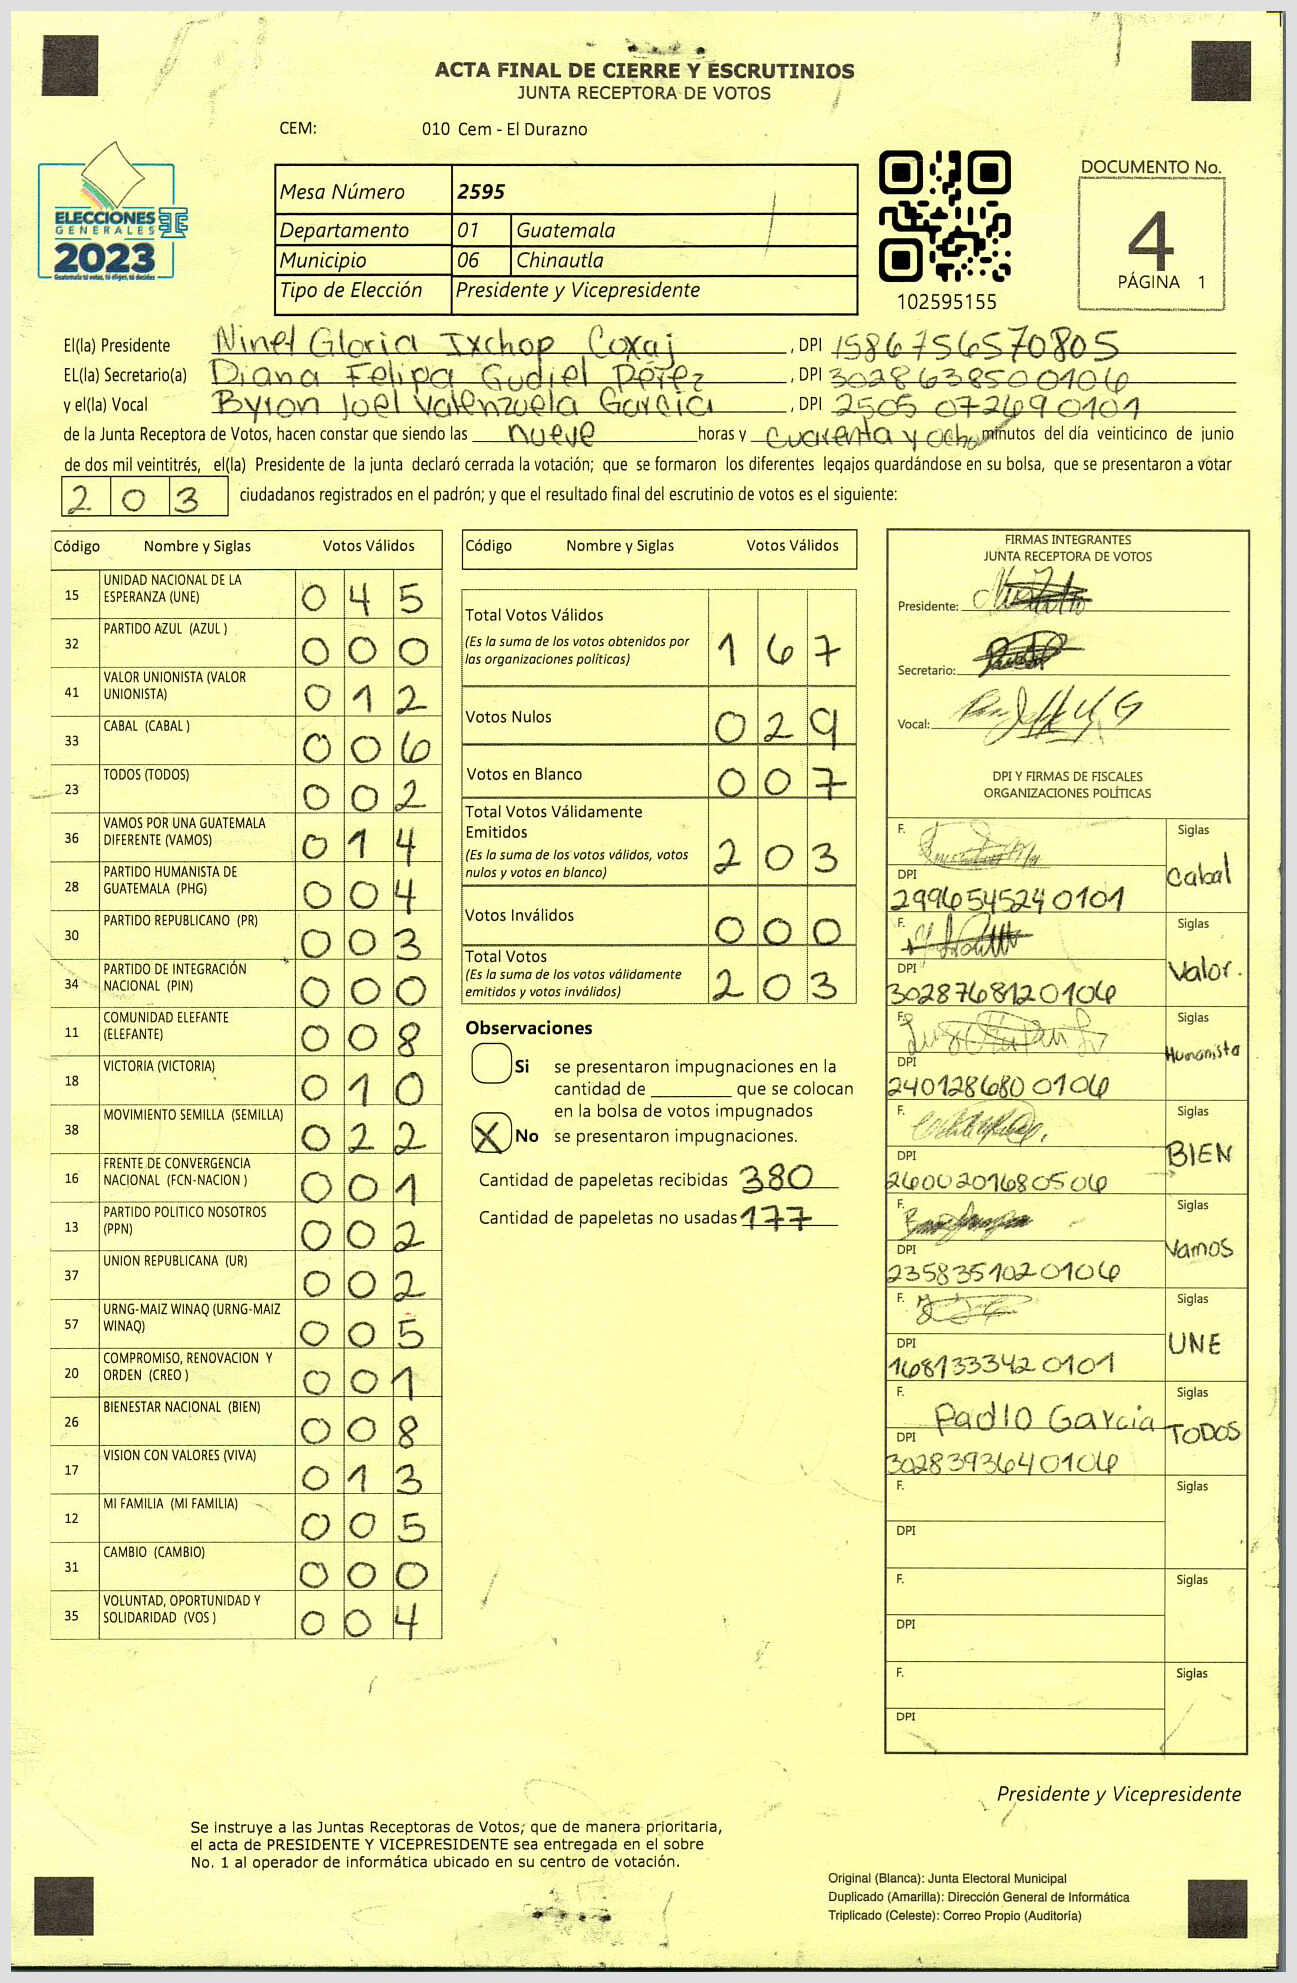 ACTA FINAL DE CIERRE Y ESCRUTINIOS
JUNTA RECEPTORA DE VOTOS
CEM: 010 Cem - El Durazno
ELECCIONES
GENERALES
2023
Guatemala tú votas, tú eliges, tú decides
Mesa Número 2595
Departamento 01 Guatemala
Municipio 06 Chinautla
Tipo de Elección Presidente y Vicepresidente
102595155
DOCUMENTO No.
4
PÁGINA 1
El(la) Presidente Ninet Gloria Ixchop Coxaj, DPI 1586756570805
EL(la) Secretario(a) Diana Felipa Gudiel Pérez, DPI 3028638500106
y el(la) Vocal Byron Joel Valenzuela Garcia, DPI 2505072690101
de la Junta Receptora de Votos, hacen constar que siendo las nueve horas y cuarenta y ocho minutos del día veinticinco de junio
de dos mil veintitrés, el(la) Presidente de la junta declaró cerrada la votación; que se formaron los diferentes legajos guardándose en su bolsa, que se presentaron a votar
203 ciudadanos registrados en el padrón; y que el resultado final del escrutinio de votos es el siguiente:
Código Nombre y Siglas Votos Válidos
15 UNIDAD NACIONAL DE LA ESPERANZA (UNE) 045
32 PARTIDO AZUL (AZUL ) 000
41 VALOR UNIONISTA (VALOR UNIONISTA) 012
33 CABAL (CABAL ) 006
23 TODOS (TODOS) 002
36 VAMOS POR UNA GUATEMALA DIFERENTE (VAMOS) 014
28 PARTIDO HUMANISTA DE GUATEMALA (PHG) 004
30 PARTIDO REPUBLICANO (PR) 003
34 PARTIDO DE INTEGRACIÓN NACIONAL (PIN) 000
11 COMUNIDAD ELEFANTE (ELEFANTE) 008
18 VICTORIA (VICTORIA) 010
38 MOVIMIENTO SEMILLA (SEMILLA) 022
16 FRENTE DE CONVERGENCIA NACIONAL (FCN-NACION ) 001
13 PARTIDO POLITICO NOSOTROS (PPN) 002
37 UNION REPUBLICANA (UR) 002
57 URNG-MAIZ WINAQ (URNG-MAIZ WINAQ) 005
20 COMPROMISO, RENOVACION Y ORDEN (CREO ) 001
26 BIENESTAR NACIONAL (BIEN) 008
17 VISION CON VALORES (VIVA) 013
12 MI FAMILIA (MI FAMILIA) 005
31 CAMBIO (CAMBIO) 000
35 VOLUNTAD, OPORTUNIDAD Y SOLIDARIDAD (VOS ) 004
Código Nombre y Siglas Votos Válidos
Total Votos Válidos 167
(Es la suma de los votos obtenidos por
las organizaciones políticas)
Votos Nulos 029
Votos en Blanco 007
Total Votos Válidamente
Emitidos 203
(Es la suma de los votos válidos, votos
nulos y votos en blanco)
Votos Inválidos 000
Total Votos 203
(Es la suma de los votos válidamente
emitidos y votos inválidos)
Observaciones
Si se presentaron impugnaciones en la
cantidad de ________ que se colocan
en la bolsa de votos impugnados
X No se presentaron impugnaciones.
Cantidad de papeletas recibidas 380
Cantidad de papeletas no usadas 177
FIRMAS INTEGRANTES
JUNTA RECEPTORA DE VOTOS
Presidente:
Secretario:
Vocal:
DPI Y FIRMAS DE FISCALES
ORGANIZACIONES POLÍTICAS
F. Siglas
Cabal
DPI
2996545240101
F. Siglas
Valor.
DPI
3028768120106
F. Siglas
Humanista
DPI
2401286800106
F. Siglas
BIEN
DPI
2600201680506
F. Siglas
Vamos
DPI
2358351020106
F. Siglas
UNE
DPI
1681333420101
F. Siglas
Padlo Garcia
TODOS
DPI
3028393640106
F. Siglas
DPI
F. Siglas
DPI
F. Siglas
DPI
Presidente y Vicepresidente
Se instruye a las Juntas Receptoras de Votos, que de manera prioritaria,
el acta de PRESIDENTE Y VICEPRESIDENTE sea entregada en el sobre
No. 1 al operador de informática ubicado en su centro de votación.
Original (Blanca): Junta Electoral Municipal
Duplicado (Amarilla): Dirección General de Informática
Triplicado (Celeste): Correo Propio (Auditoría)